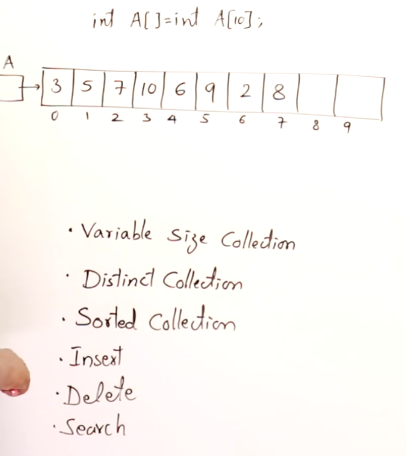 int A[]=int A[10];
A
3 5 7 10 6 9 2 8
0 1 2 3 4 5 6 7 8 9
• Variable Size Collection
• Distinct Collection
• Sorted Collection
• Insert
• Delete
• Search